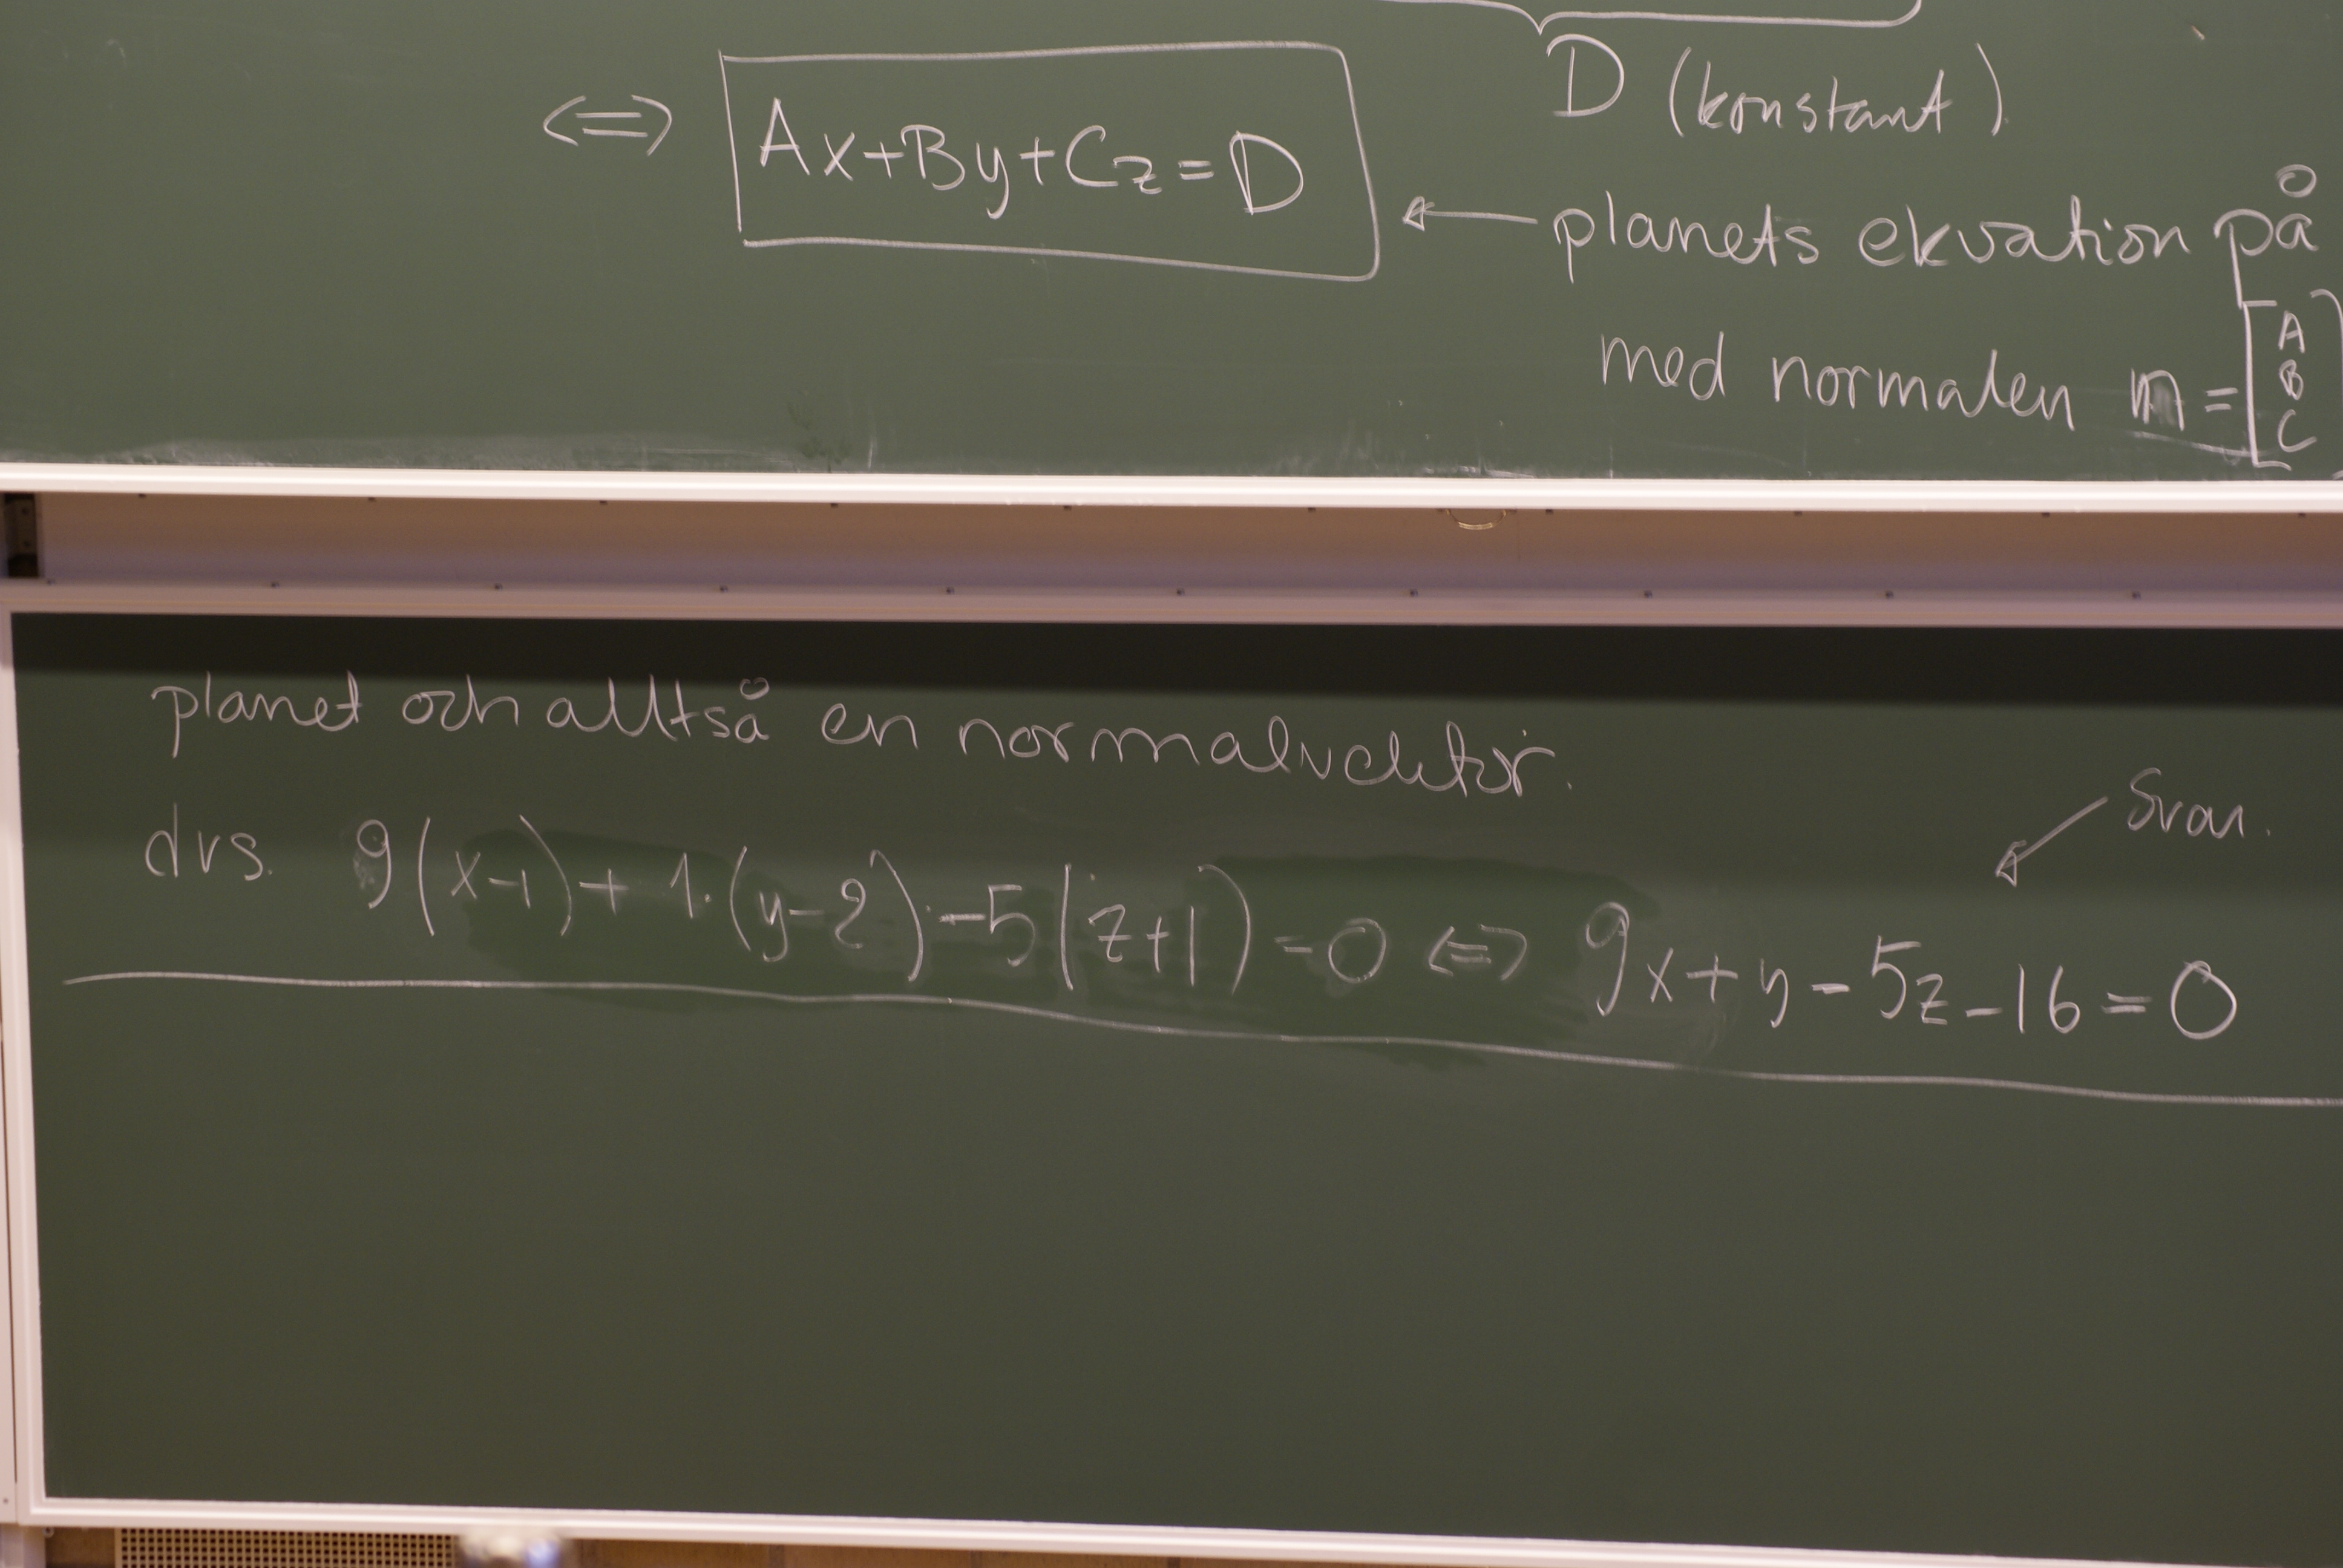 D (konstant)
<=> Ax+By+Cz=D
← planets ekvation på
med normalen n = [A B C]
planet och alltså en normalvektor.
dvs. 9(x-1) + 1·(y-2) -5(z+1) = 0 <=> 9x+y-5z-16=0
↙ Svar.